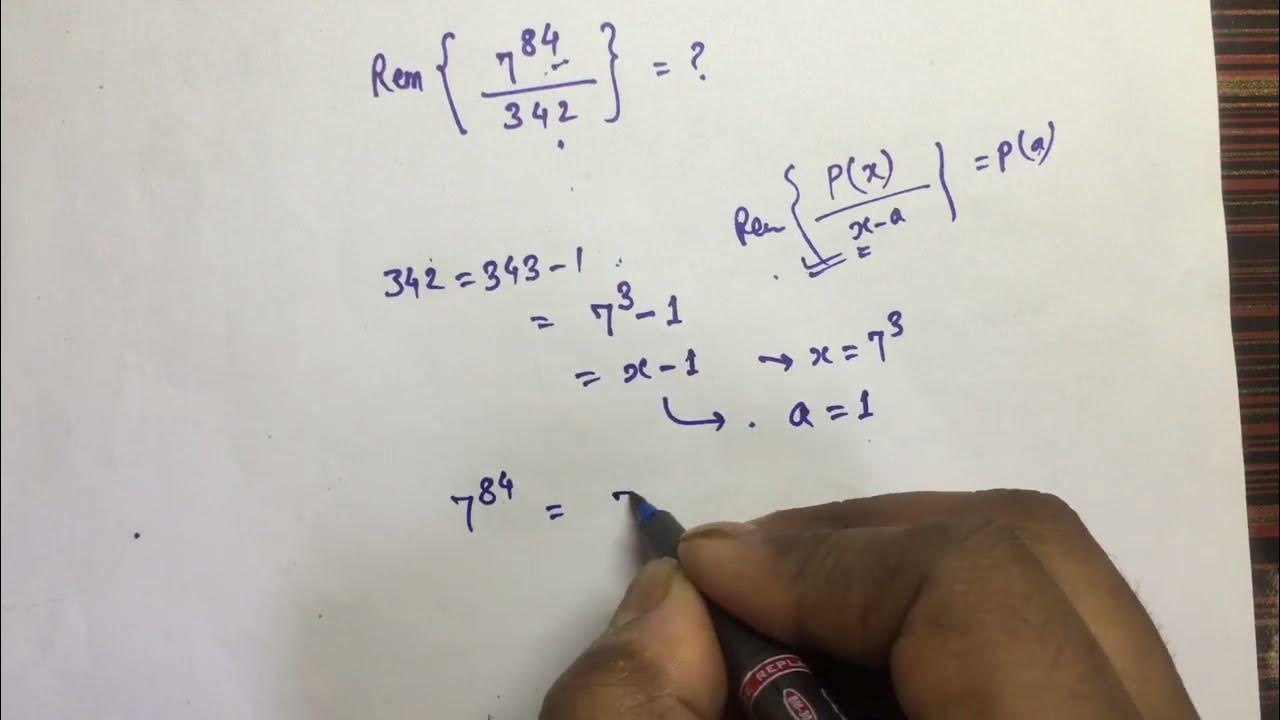 Rem { 7^84 / 342 } = ?
Rem { P(x) / x-a } = P(a)
342 = 343 - 1
= 7^3 - 1
= x - 1 → x = 7^3
↳ . a = 1
7^84 = 7